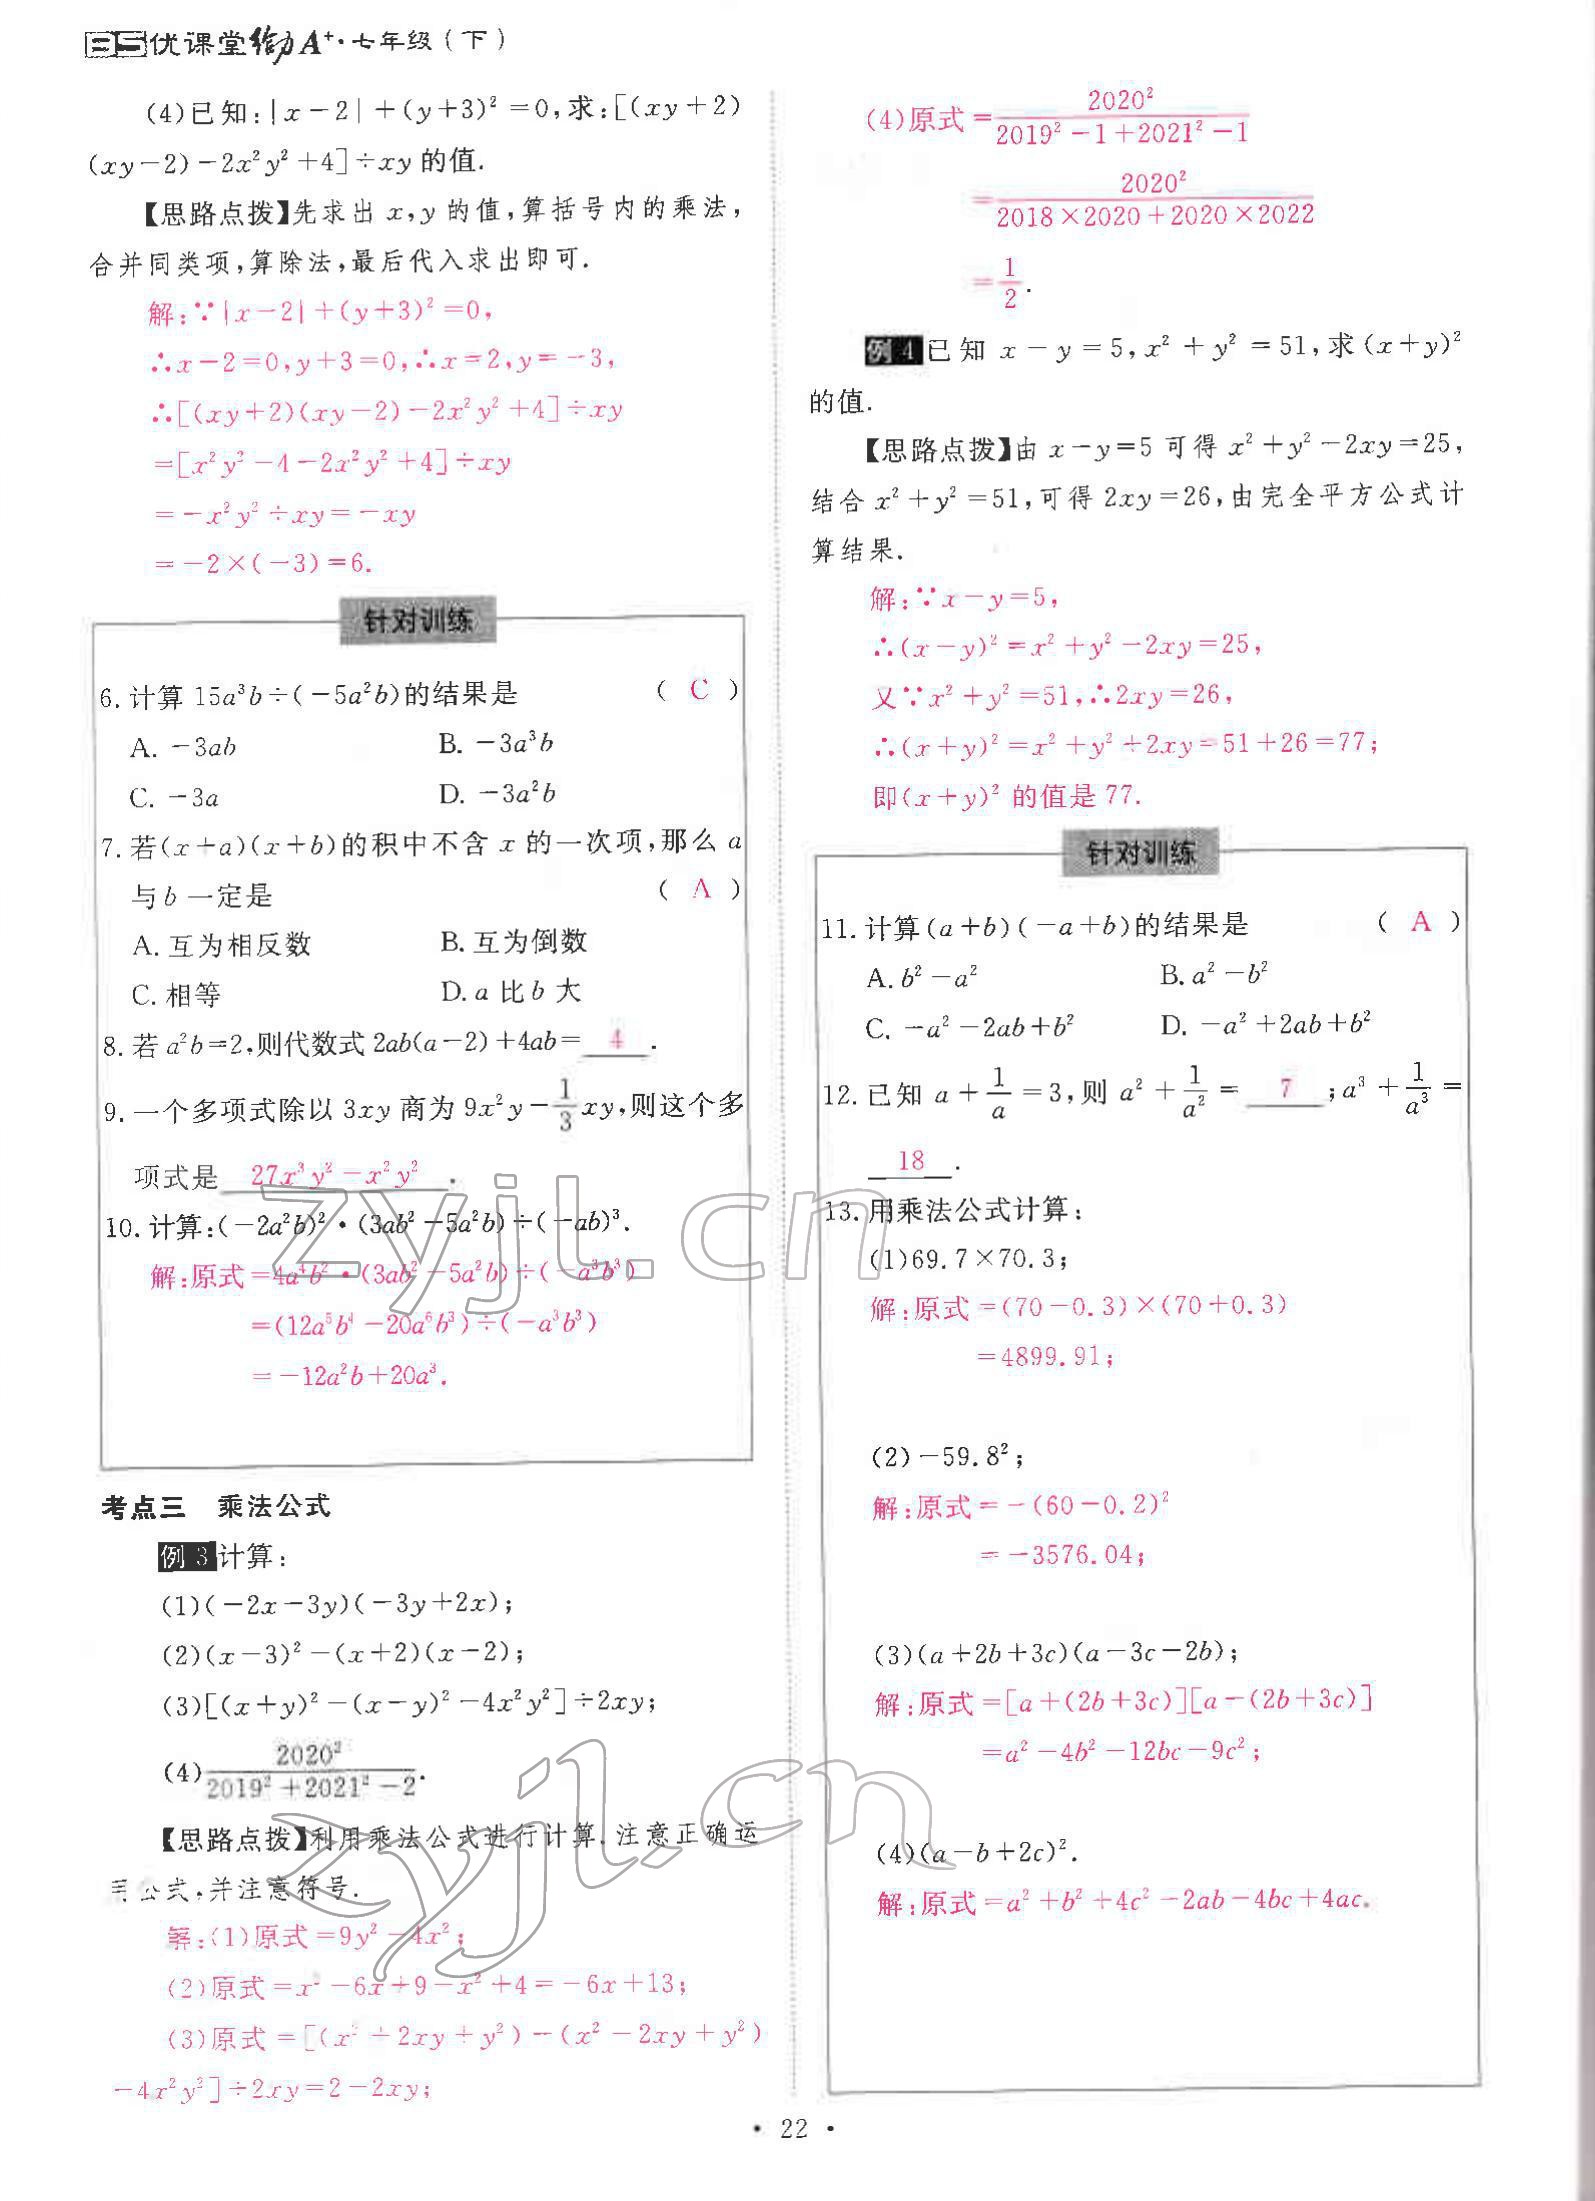 优课堂给力A⁺·七年级（下）
(4)已知:|x－2|＋(y＋3)²＝0,求:[(xy＋2)
(xy－2)－2x²y²＋4]÷xy的值.
【思路点拨】先求出x,y的值,算括号内的乘法,
合并同类项,算除法,最后代入求出即可.
解:∵|x－2|＋(y＋3)²＝0,
∴x－2＝0,y＋3＝0,∴x＝2,y＝－3,
∴[(xy＋2)(xy－2)－2x²y²＋4]÷xy
＝[x²y²－4－2x²y²＋4]÷xy
＝－x²y²÷xy＝－xy
＝－2×(－3)＝6.
针对训练
6.计算15a³b÷(－5a²b)的结果是 ( C )
A.－3ab B.－3a³b
C.－3a D.－3a²b
7.若(x＋a)(x＋b)的积中不含x的一次项,那么a
与b一定是 ( A )
A.互为相反数 B.互为倒数
C.相等 D.a比b大
8.若a²b＝2,则代数式2ab(a－2)＋4ab＝ 4 .
9.一个多项式除以3xy商为9x²y－1/3xy,则这个多
项式是 27x³y²－x²y² .
10.计算:(－2a²b)²·(3ab²－5a²b)÷(－ab)³.
解:原式＝4a⁴b²·(3ab²－5a²b)÷(－a³b³)
＝(12a⁵b⁴－20a⁶b³)÷(－a³b³)
＝－12a²b＋20a³.
考点三 乘法公式
例3 计算:
(1)(－2x－3y)(－3y＋2x);
(2)(x－3)²－(x＋2)(x－2);
(3)[(x＋y)²－(x－y)²－4x²y²]÷2xy;
(4) 2020²/(2019²＋2021²－2).
【思路点拨】利用乘法公式进行计算.注意正确运
用公式,并注意符号.
解:(1)原式＝9y²－4x²;
(2)原式＝x²－6x＋9－x²＋4＝－6x＋13;
(3)原式＝[(x²＋2xy＋y²)－(x²－2xy＋y²)
－4x²y²]÷2xy＝2－2xy;
(4)原式＝2020²/(2019²－1＋2021²－1)
＝2020²/(2018×2020＋2020×2022)
＝1/2.
例4 已知x－y＝5,x²＋y²＝51,求(x＋y)²
的值.
【思路点拨】由x－y＝5可得x²＋y²－2xy＝25,
结合x²＋y²＝51,可得2xy＝26,由完全平方公式计
算结果.
解:∵x－y＝5,
∴(x－y)²＝x²＋y²－2xy＝25,
又∵x²＋y²＝51,∴2xy＝26,
∴(x＋y)²＝x²＋y²＋2xy＝51＋26＝77;
即(x＋y)²的值是77.
针对训练
11.计算(a＋b)(－a＋b)的结果是 ( A )
A.b²－a² B.a²－b²
C.－a²－2ab＋b² D.－a²＋2ab＋b²
12.已知a＋1/a＝3,则a²＋1/a²＝ 7 ;a³＋1/a³＝
18 .
13.用乘法公式计算:
(1)69.7×70.3;
解:原式＝(70－0.3)×(70＋0.3)
＝4899.91;
(2)－59.8²;
解:原式＝－(60－0.2)²
＝－3576.04;
(3)(a＋2b＋3c)(a－3c－2b);
解:原式＝[a＋(2b＋3c)][a－(2b＋3c)]
＝a²－4b²－12bc－9c²;
(4)(a－b＋2c)².
解:原式＝a²＋b²＋4c²－2ab－4bc＋4ac.
·22·
zyjl.cn
zyjl.cn